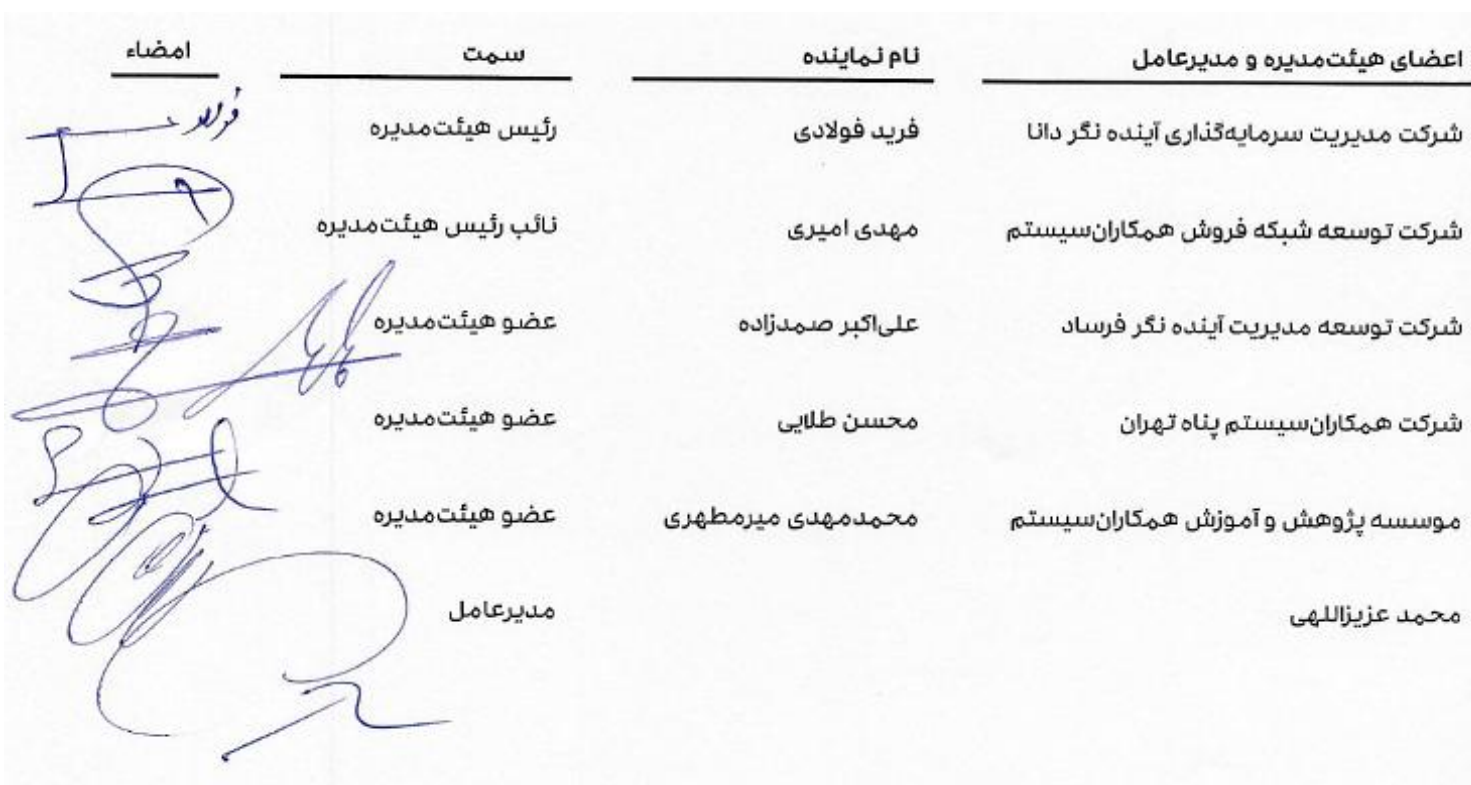 اعضای هیئت‌مدیره و مدیرعامل نام نماینده سمت امضاء
شرکت مدیریت سرمایه‌گذاری آینده نگر دانا فرید فولادی رئیس هیئت‌مدیره
شرکت توسعه شبکه فروش همکاران‌سیستم مهدی امیری نائب رئیس هیئت‌مدیره
شرکت توسعه مدیریت آینده نگر فرساد علی‌اکبر صمدزاده عضو هیئت‌مدیره
شرکت همکاران‌سیستم پناه تهران محسن طلایی عضو هیئت‌مدیره
موسسه پژوهش و آموزش همکاران‌سیستم محمدمهدی میرمطهری عضو هیئت‌مدیره
محمد عزیزاللهی مدیرعامل